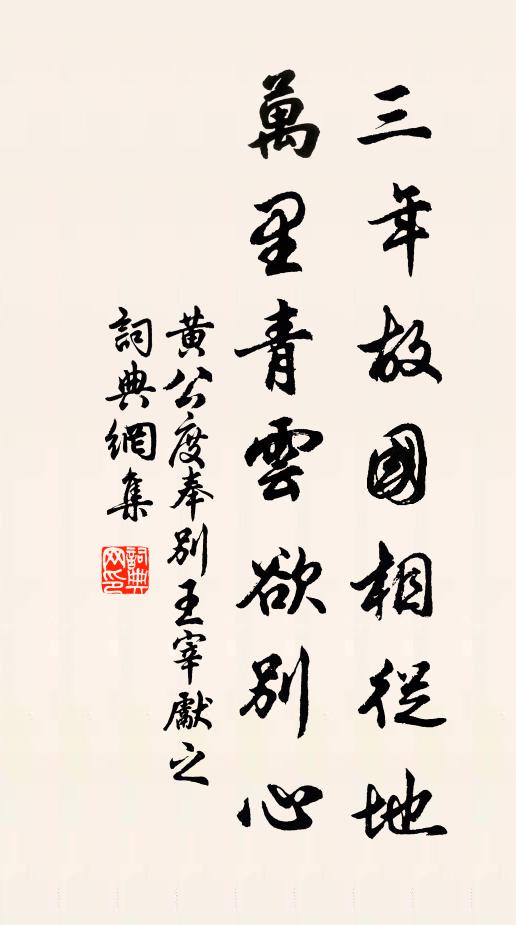 三年故國相從地
萬里青雲欲別心
黄公度奉別王宰獻之
詞典網集
詞典网印